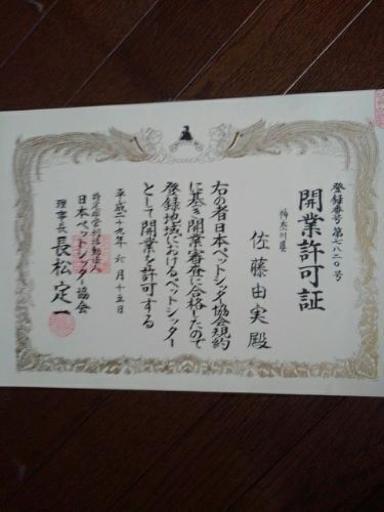 登録番号 第七八二〇号
開業許可証
神奈川県
佐藤由実殿
右の者日本ペットシッター協会規約
に基き開業審査に合格したので
登録地域におけるペットシッター
として開業を許可する
平成二十九年 六月 十五日
特定非営利活動法人
日本ペットシッター協会
理事長 長松定一